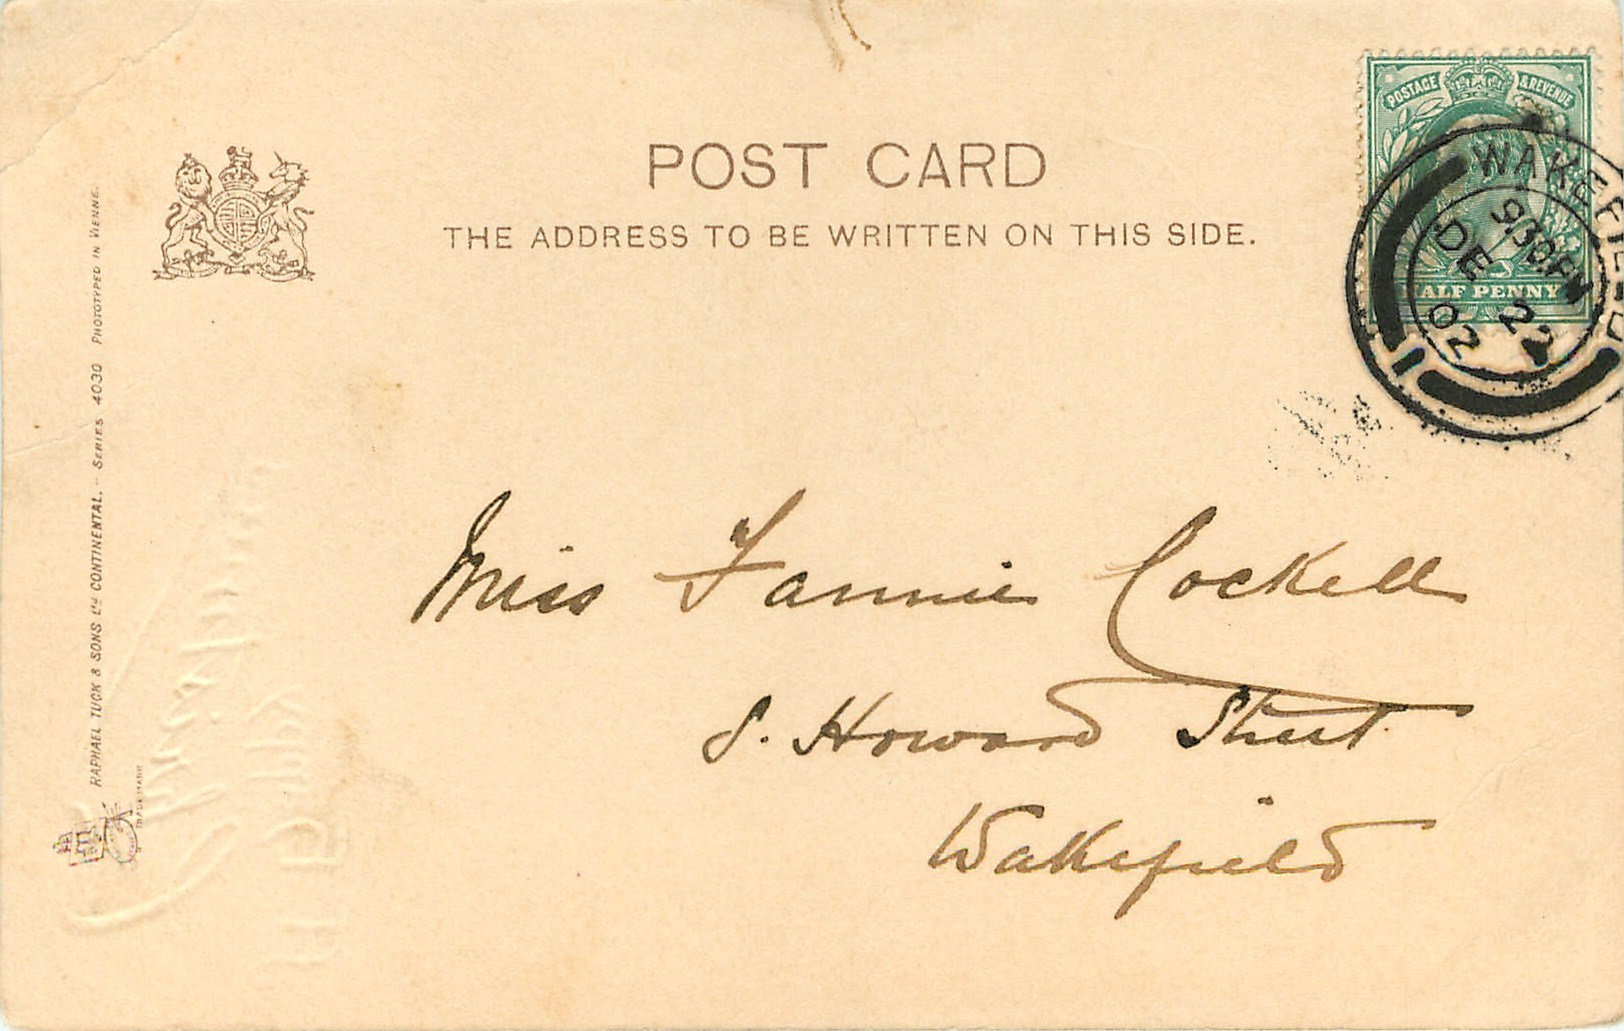 POST CARD
THE ADDRESS TO BE WRITTEN ON THIS SIDE.
POSTAGE & REVENUE
ALF PENNY
WAKEFIELD
9 30 PM
DE 22
02
1
Miss Fannie Cockell
8. Howard Street.
Wakefield
RAPHAEL TUCK & SONS LD CONTINENTAL. – SERIES 4030 PHOTOTYPED IN VIENNE.
TRADE MARK